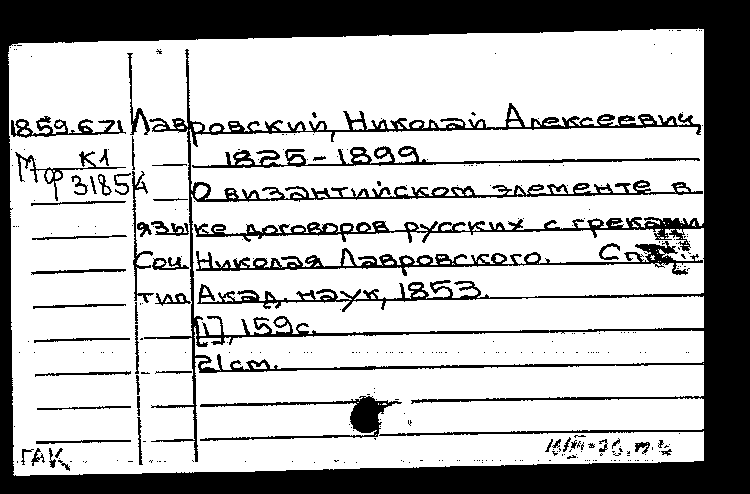 1859.671 Лавровский, Николай Алексеевич,
К1 1825-1899.
31854 О византийском элементе в
языке договоров русских с греками
Соч. Николая Лавровского.
тип Акад. наук, 1853.
[1], 159 с.
21 см.
ГАК